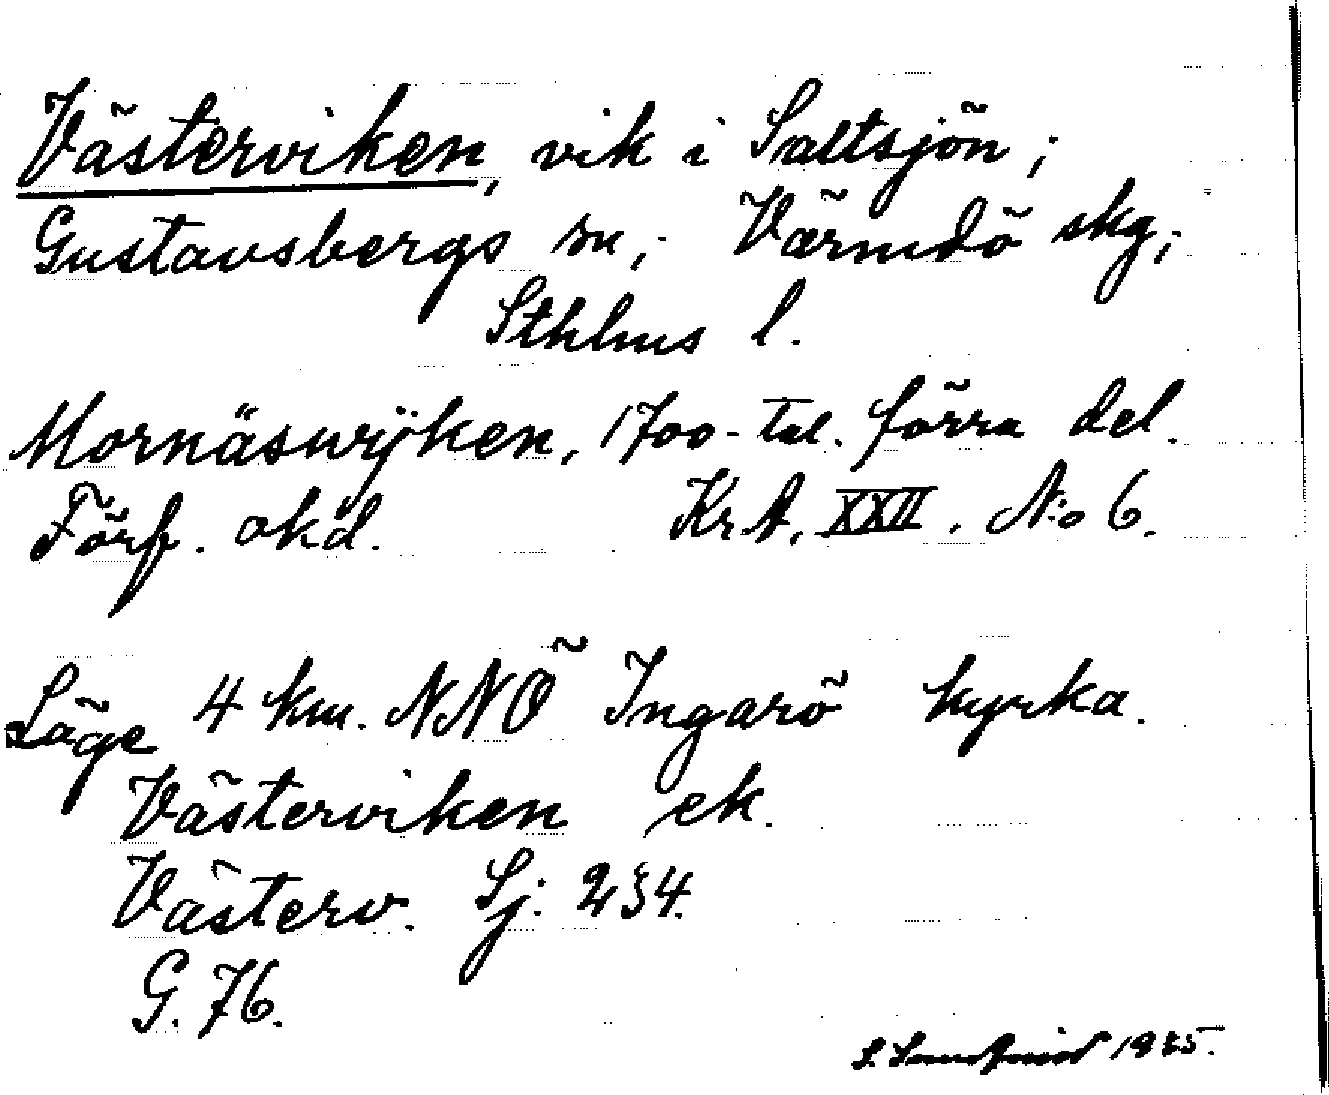 Västerviken, vik i Saltsjön;
Gustavsbergs sn; Värmdö skg;
Sthlms l.
Mornäswijken, 1700-tal. förra del.
Förf. okd. Kr. A. XXII. No 6.
Läge 4 km. NNÖ Ingarö kyrka.
Västerviken ek.
Västerv. Sj. 234.
G. 76.
S. 1925.